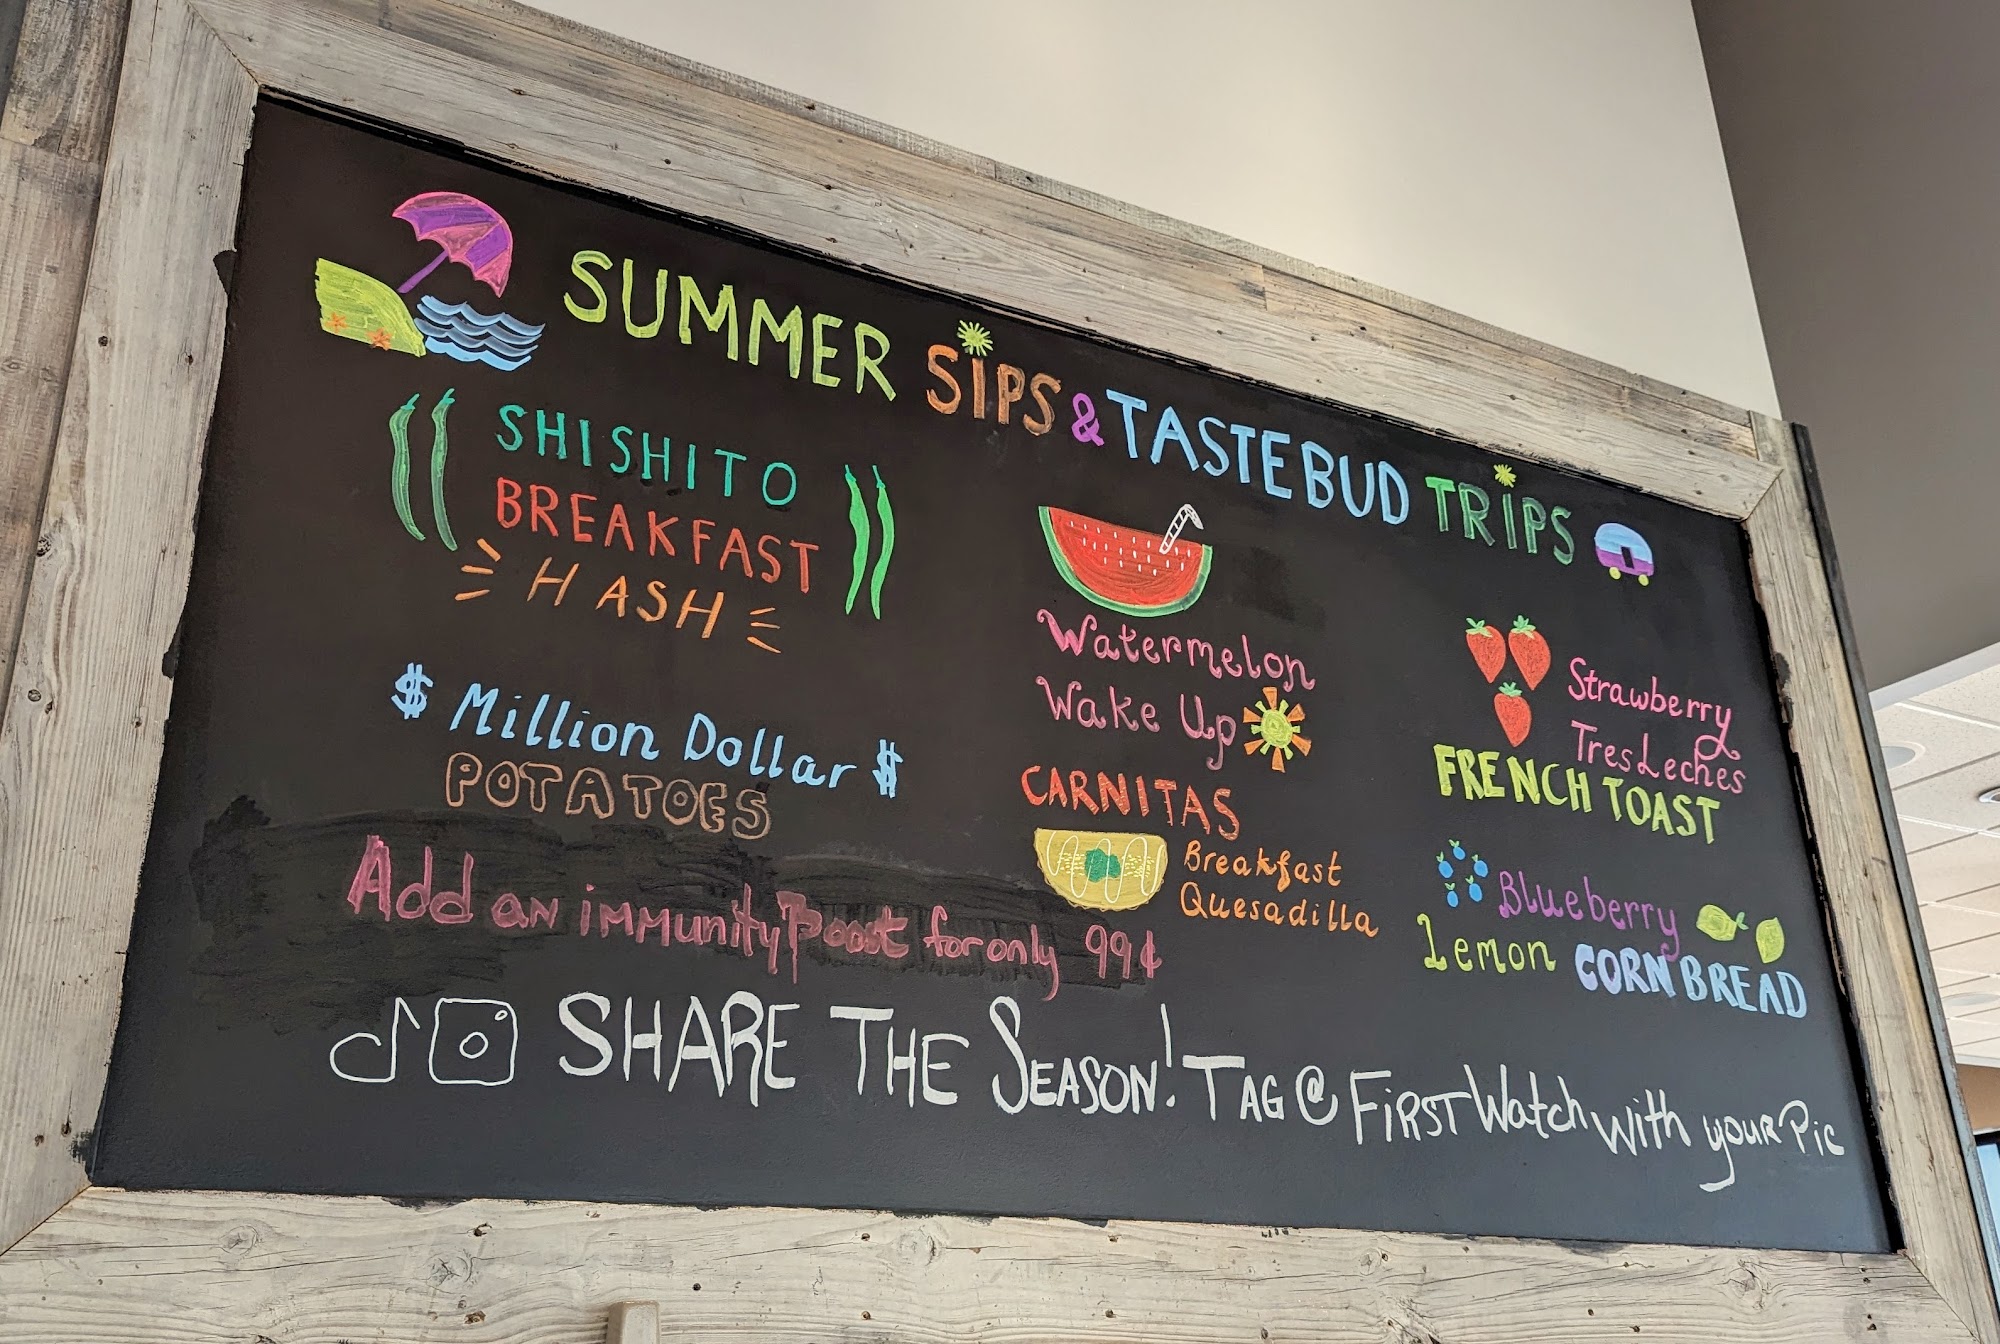 SUMMER SIPS & TASTEBUD TRIPS
SHISHITO
BREAKFAST
HASH
$ Million Dollar $
POTATOES
Add an immunity boost for only 99¢
Watermelon
Wake Up
CARNITAS
Breakfast
Quesadilla
Strawberry
Tres Leches
FRENCH TOAST
Blueberry
Lemon CORN BREAD
SHARE THE SEASON! TAG @ FIRST Watch with your Pic